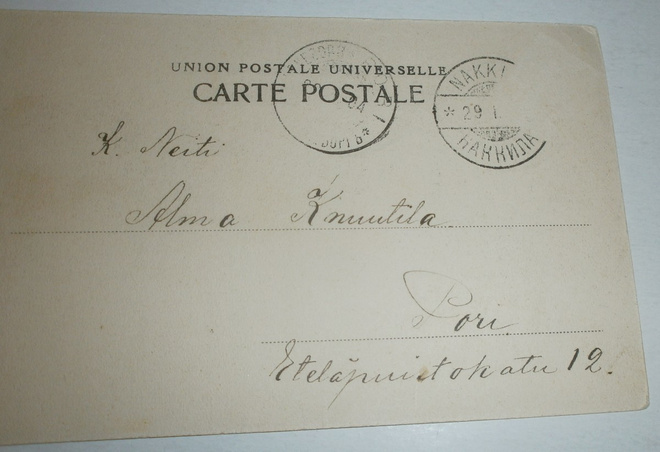 UNION POSTALE UNIVERSELLE
CARTE POSTALE
NAKKI
* 29 I.
НАККИЛА
K. Neiti
Alma Knuutila
Pori
Eteläpuistokatu 12.